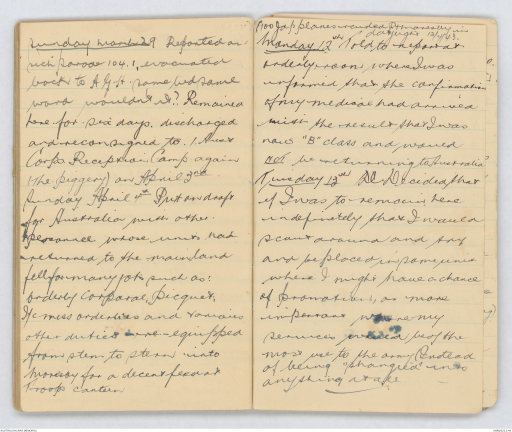 Sunday March 29 Reported on
sick parade 104.1, evacuated
back to A.G.H. same bed same
ward wouldn't it? Remained
here for six days. discharged
and reconsigned to 1 Aust
Corps Reception Camp again
(the piggery) on April 3rd
Sunday April 4th Put on draft
for Australia with other
personnel whose units had
returned to the mainland
fell for many jobs such as:
orderly Corporal, Picquet,
i/c mess orderlies and various
other duties re-equipped
from stem to stern into
Moresby for a decent feed at
Troops canteen
(100 Jap planes raided Pt Moresby in
daylight 12/4/43.
Monday 12th Told to report at
orderly room where I was
informed that the confirmation
of my medical had arrived
with the result that I was
now "B" class and would
not be returning to Australia
Tuesday 13th Decided that
if I was to remain here
indefinitely that I would
scout around and try
and be placed in some unit
where I might have a chance
of promotion, or more
important where my
services would be of the
most use to the army (instead
of being "shanghaied" into
anything at all